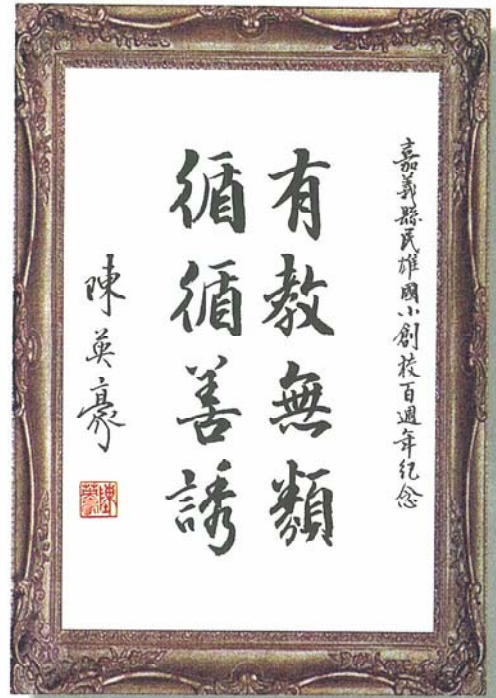 嘉義縣民雄國小創校百週年紀念
有教無類
循循善誘
陳英豪